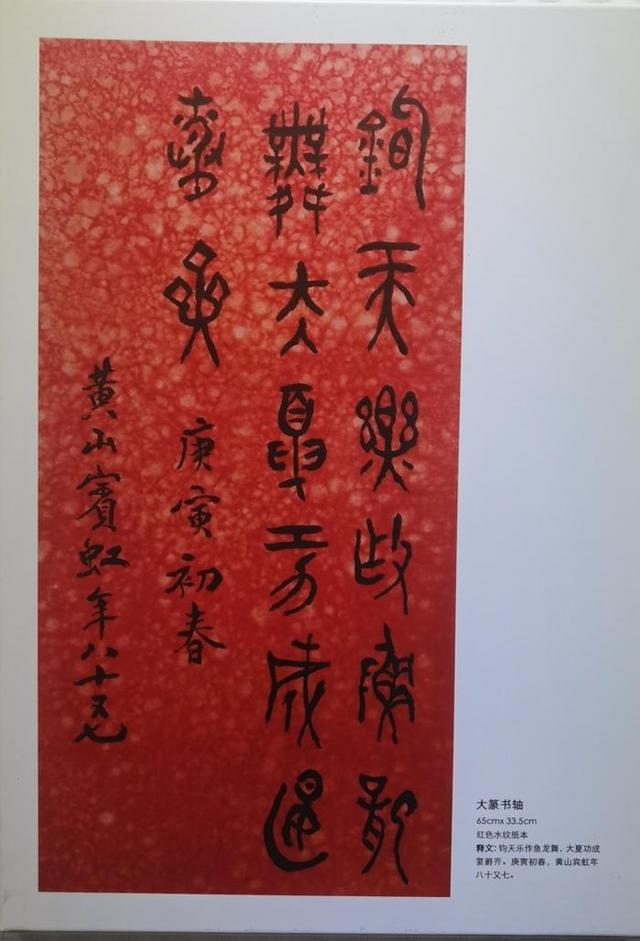 鈞天樂作魚龍
舞大夏功成宴
爵齊 庚寅初春
黃山賓虹年八十又七
大篆书轴
65cmx 33.5cm
红色水纹纸本
释文：钧天乐作鱼龙舞，大夏功成
宴爵齐。庚寅初春，黄山宾虹年
八十又七。